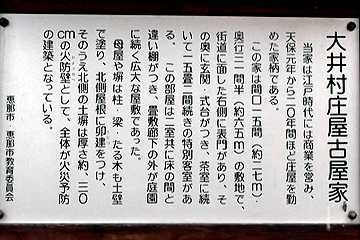 大井村庄屋古屋家
当家は江戸時代には商業を営み、
天保元年から二〇年間ほど庄屋を勤
めた家柄である。
この家は間口一五間（約二七m）
奥行三一間半（約六五m）の敷地で、
街道に面した右側に表門があり、そ
の奥に玄関・式台がつき、茶室に続
いて一五畳二間続きの特別客室があ
る。この部屋は二室共に床の間と
違い棚がつき、畳敷廊下の外が庭園
に続く広大な屋敷であった。
母屋や塀は柱・梁・たる木も土壁
で塗り、北側屋根に卯建をつけ、
そのうえ北側の土塀は厚さ約、三〇
cmの火防壁として、全体が火災予防
の建築となっている。
恵那市　恵那市教育委員会